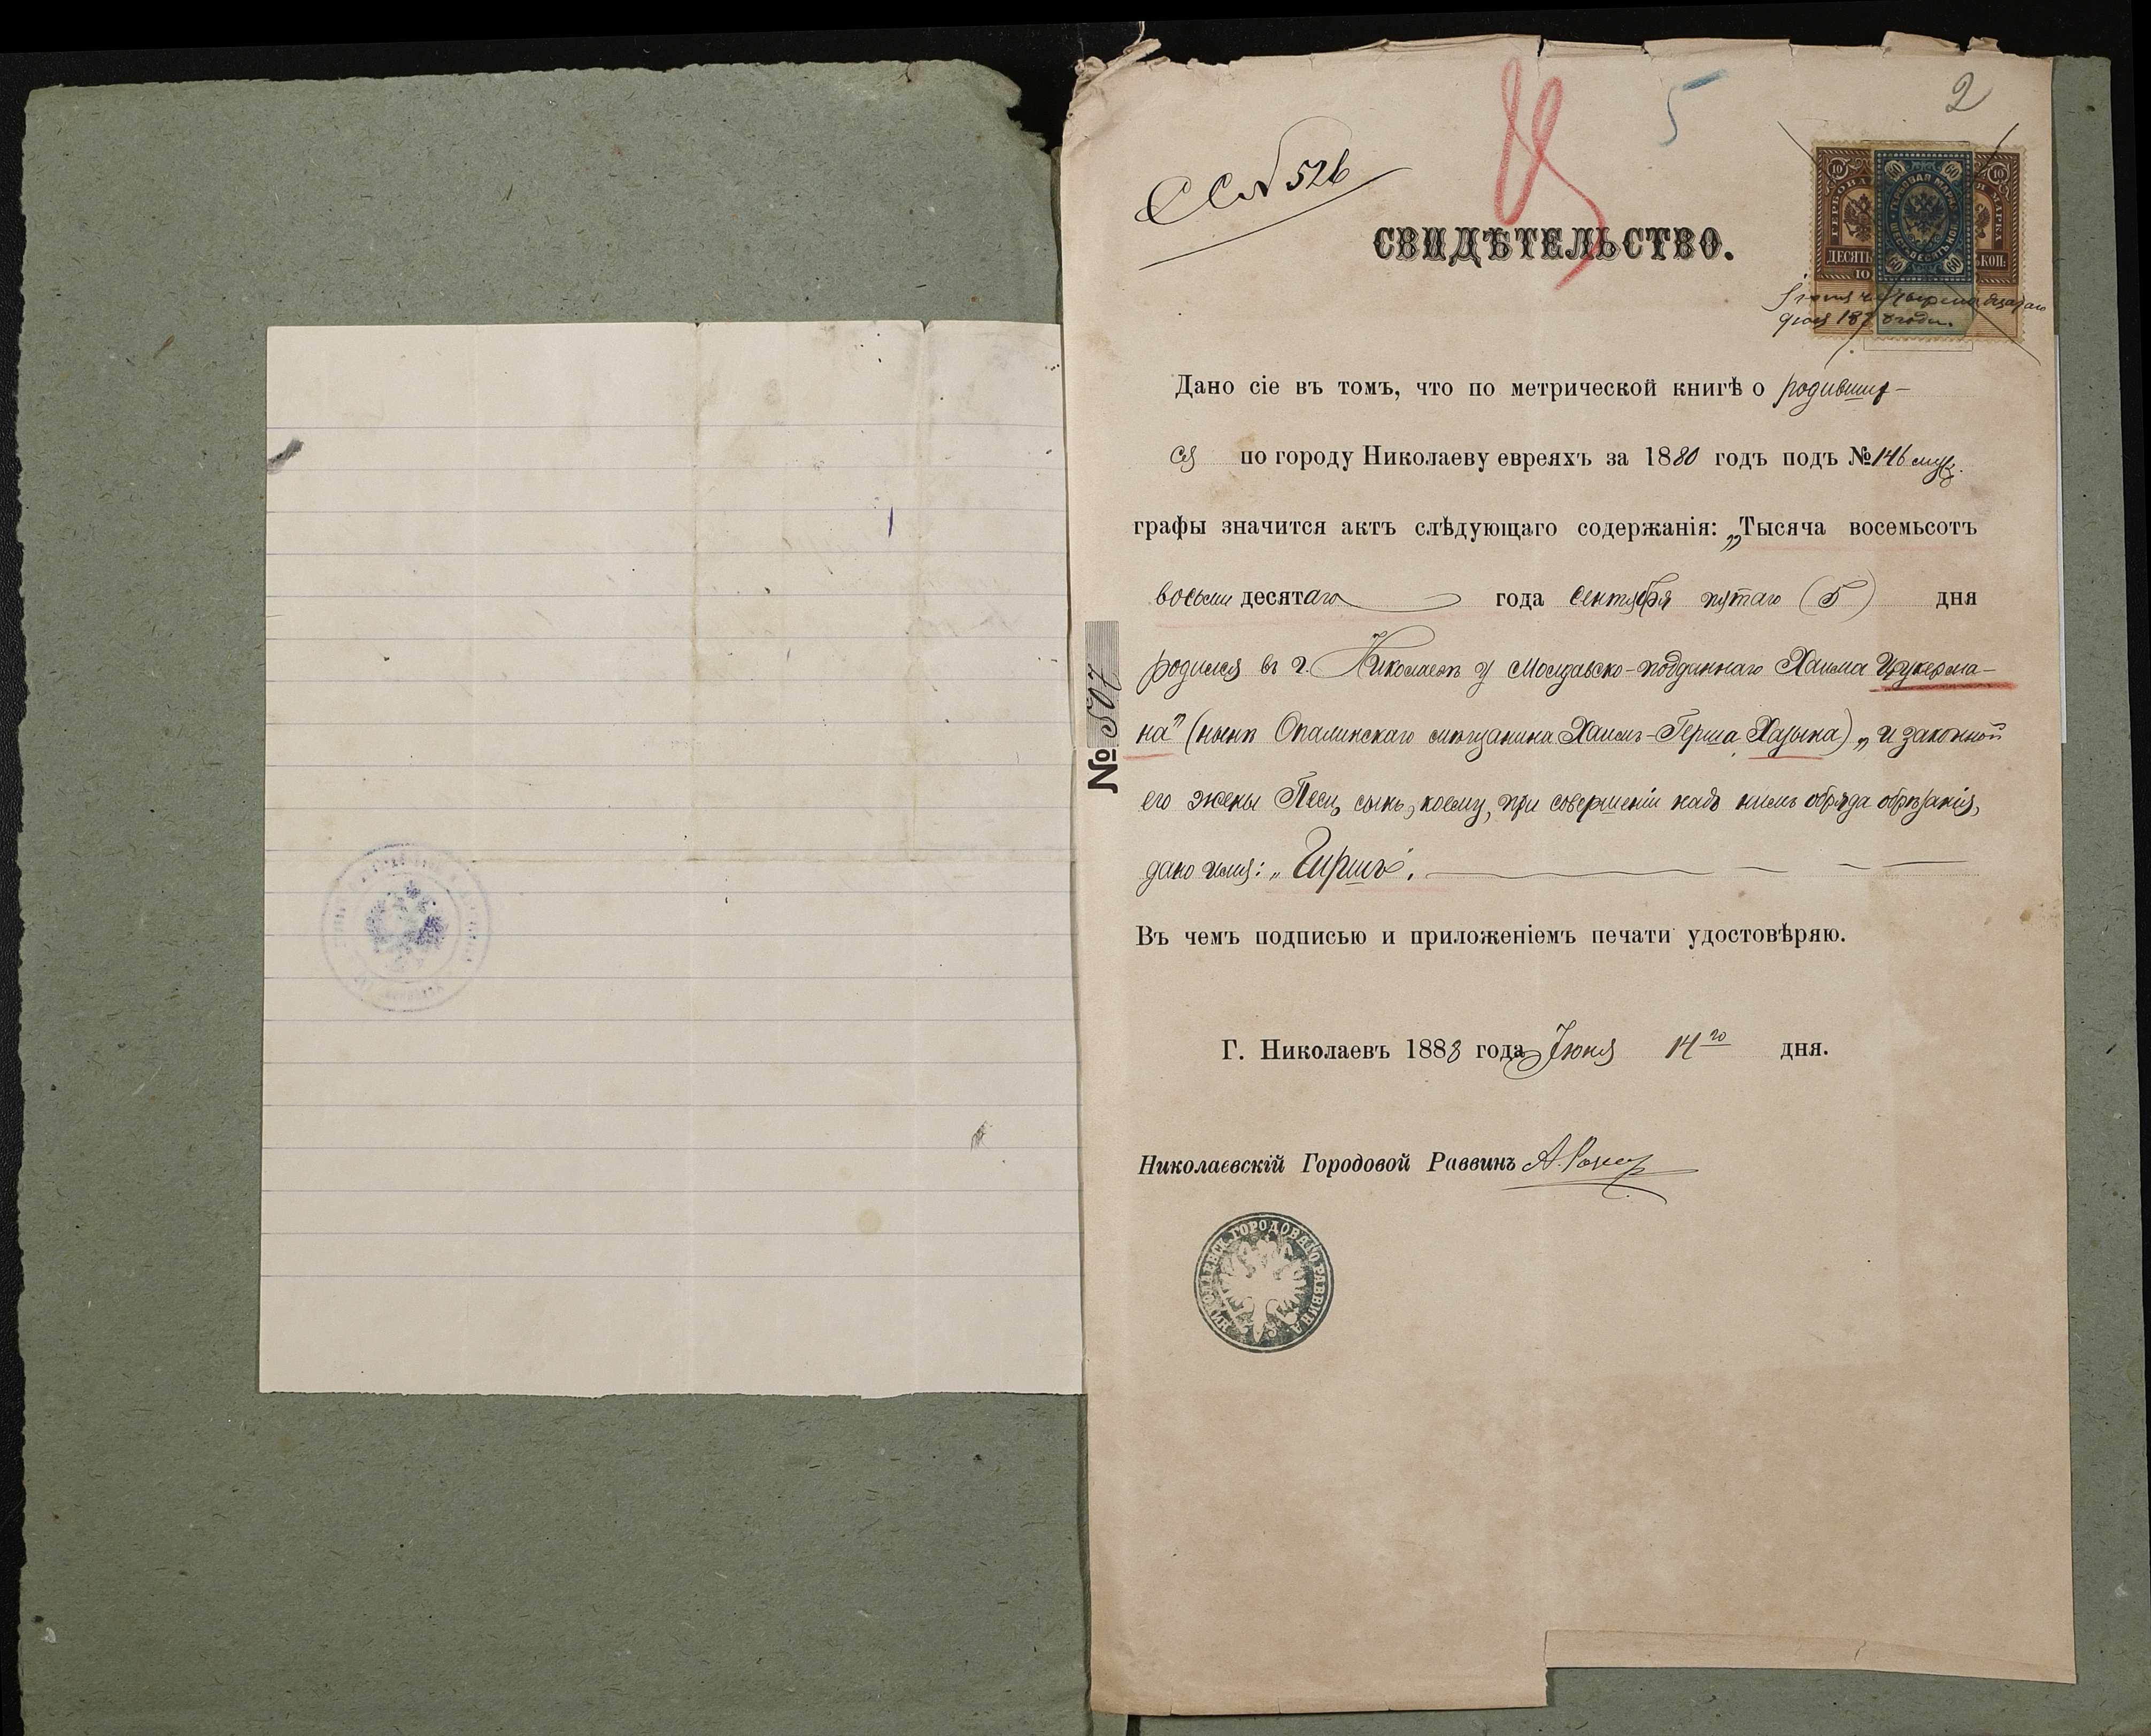 2
5
№ 526
СВИДѢТЕЛЬСТВО.
10 60 60 10
ГЕРБОВАЯ МАРКА
ДЕСЯТЬ КОП.
ШЕСТЬДЕСЯТЪ КОП.
60 60
10
Іюня четырнадцатаго
дня 188 года.
Дано сіе въ томъ, что по метрической книгѣ о родивших-
ся по городу Николаеву евреяхъ за 1880 годъ подъ №146 муж.
графы значится актъ слѣдующаго содержанія: „Тысяча восемьсотъ
восьмидесятаго года Сентября пятаго (5) дня
родился въ г. Николаевѣ у Молдавско-подданнаго Хаима Цукерма-
на" (нынѣ Опалинскаго мѣщанина Хаимъ-Герша Хазына) „и законной
его жены Песи, сынъ, коему, при совершеніи надъ нимъ обряда обрѣзанія,
дано имя: „Гиршъ".
Въ чемъ подписью и приложеніемъ печати удостовѣряю.
Г. Николаевъ 1883 года Іюня 14го дня.
Николаевскій Городовой Раввинъ А.
НИКОЛАЕВСК. ГОРОДОВАГО РАВВИНА
№ 507